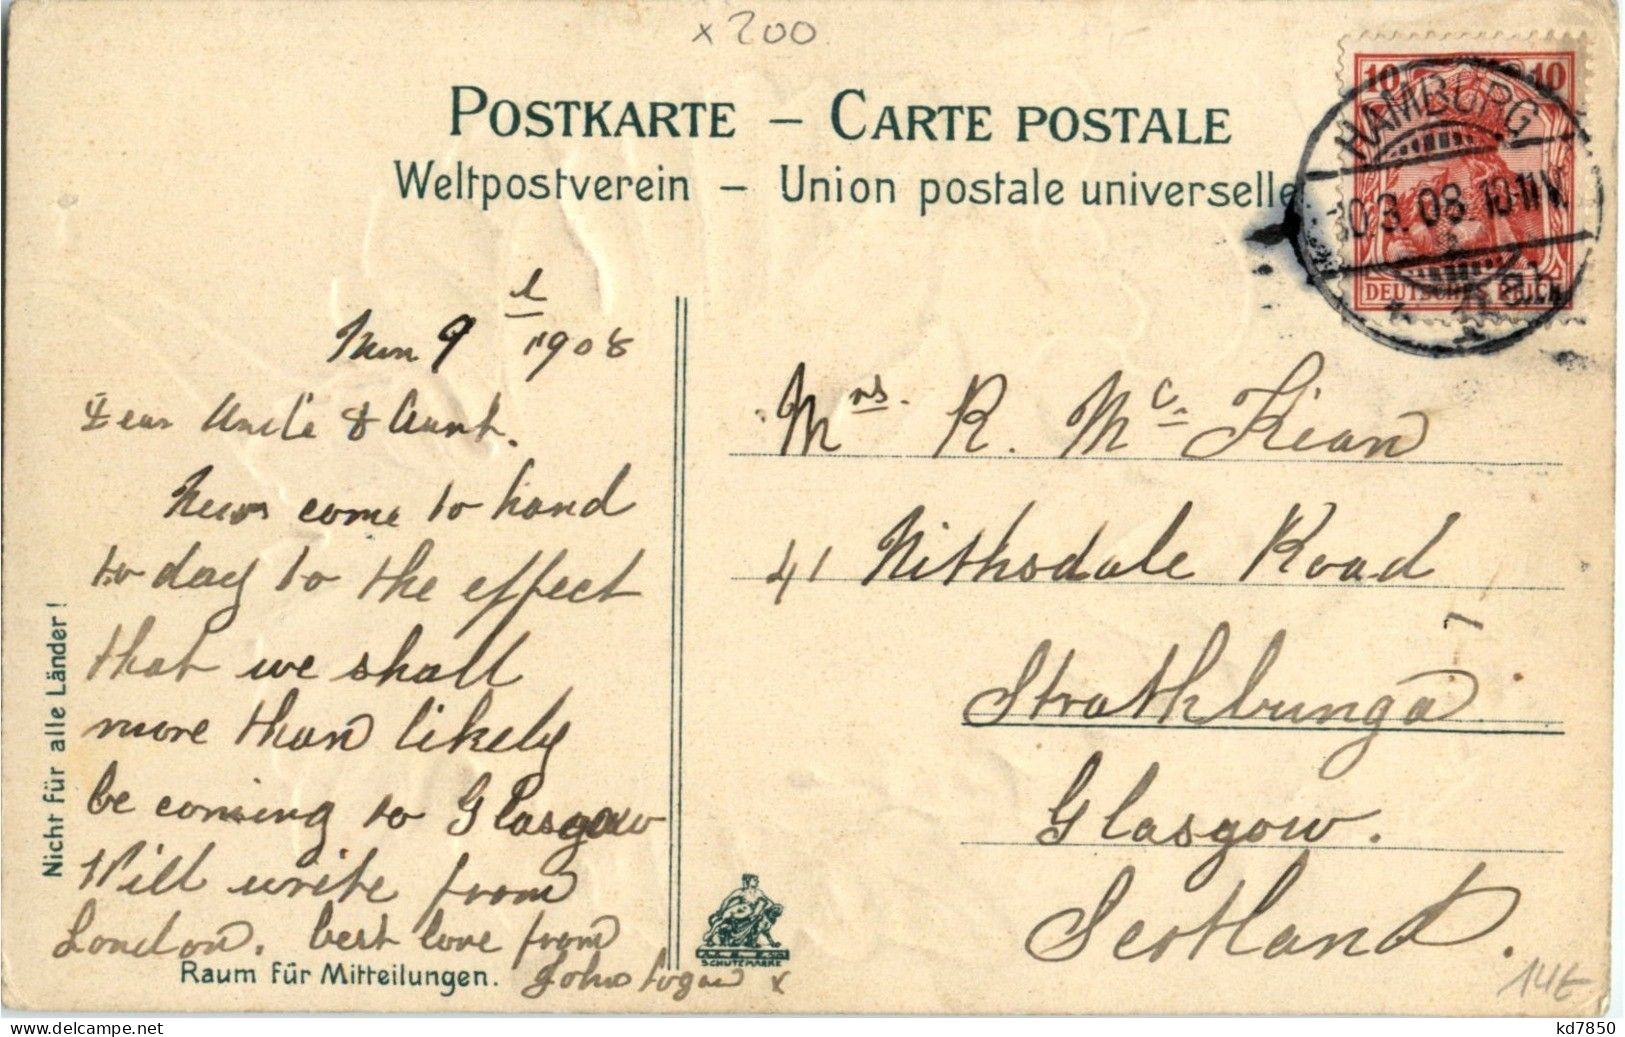 x 200
POSTKARTE – CARTE POSTALE
Weltpostverein – Union postale universelle
10 10
HAMBURG
30.3.08.10-11V.
DEUTSCHES REICH
9 1908
Dear Uncle & Aunt.
News come to hand
to day to the effect
that we shall
more than likely
be coming to Glasgow
Will write from
London. best love from
John Logan x
Nicht für alle Länder!
Raum für Mitteilungen.
SCHUTZMARKE
Mrs. R. Mc Kean
41 Nithsdale Road
Strathbunga
Glasgow.
Scotland.
14t
kd7850